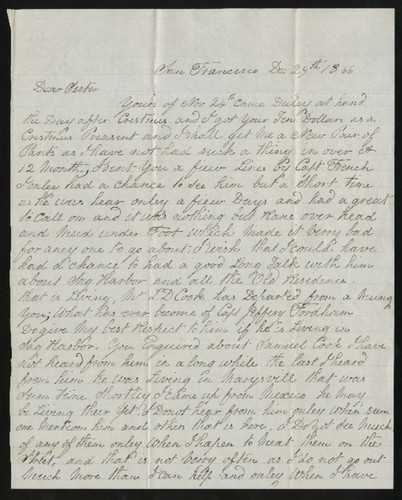 San Francisco Dec 29th 1866
Dear Sister
Yours of Nov 24th came Duley at hand
the Day after Crestmus and I got your Ten Dollars as a
Crestmus Preasent and I shall get Me a New Pair of
Pants as I have not had such a thing in over
12 Month, I sent You a fiew Lines by Capt French
I onley had a chance to See him but a Short time
as he was hear onley a fiew Days and had a great
to Call on and it was nothing but Rane over head
and Mud under Foot which made it verry bad
for aney one to go about; I wish that I could have
had a chance to had a good Long Talk with him
about Sag Harbor and all the Old Residence
that is Living, Mr J D Cook has Departed from a Mung
You; What has ever become of Capt Jeffery Fordham
Do give My best Respect to him if he is Living in
Sag Harbor. You Enquired about Samuel Cook I have
not heard from him in a long while the last I heard
from him he was Living in Marysville that was
sum time Shortley I came up from Mexico he may
be Living their Yet I Do not hear from him onley when sum
one Meet him and other that is here, I Do not See Much
of any of them onley When I hapen to Meat them on the
Street, and that is not verry often as I do not go out
Much more than I can help and onley When I have